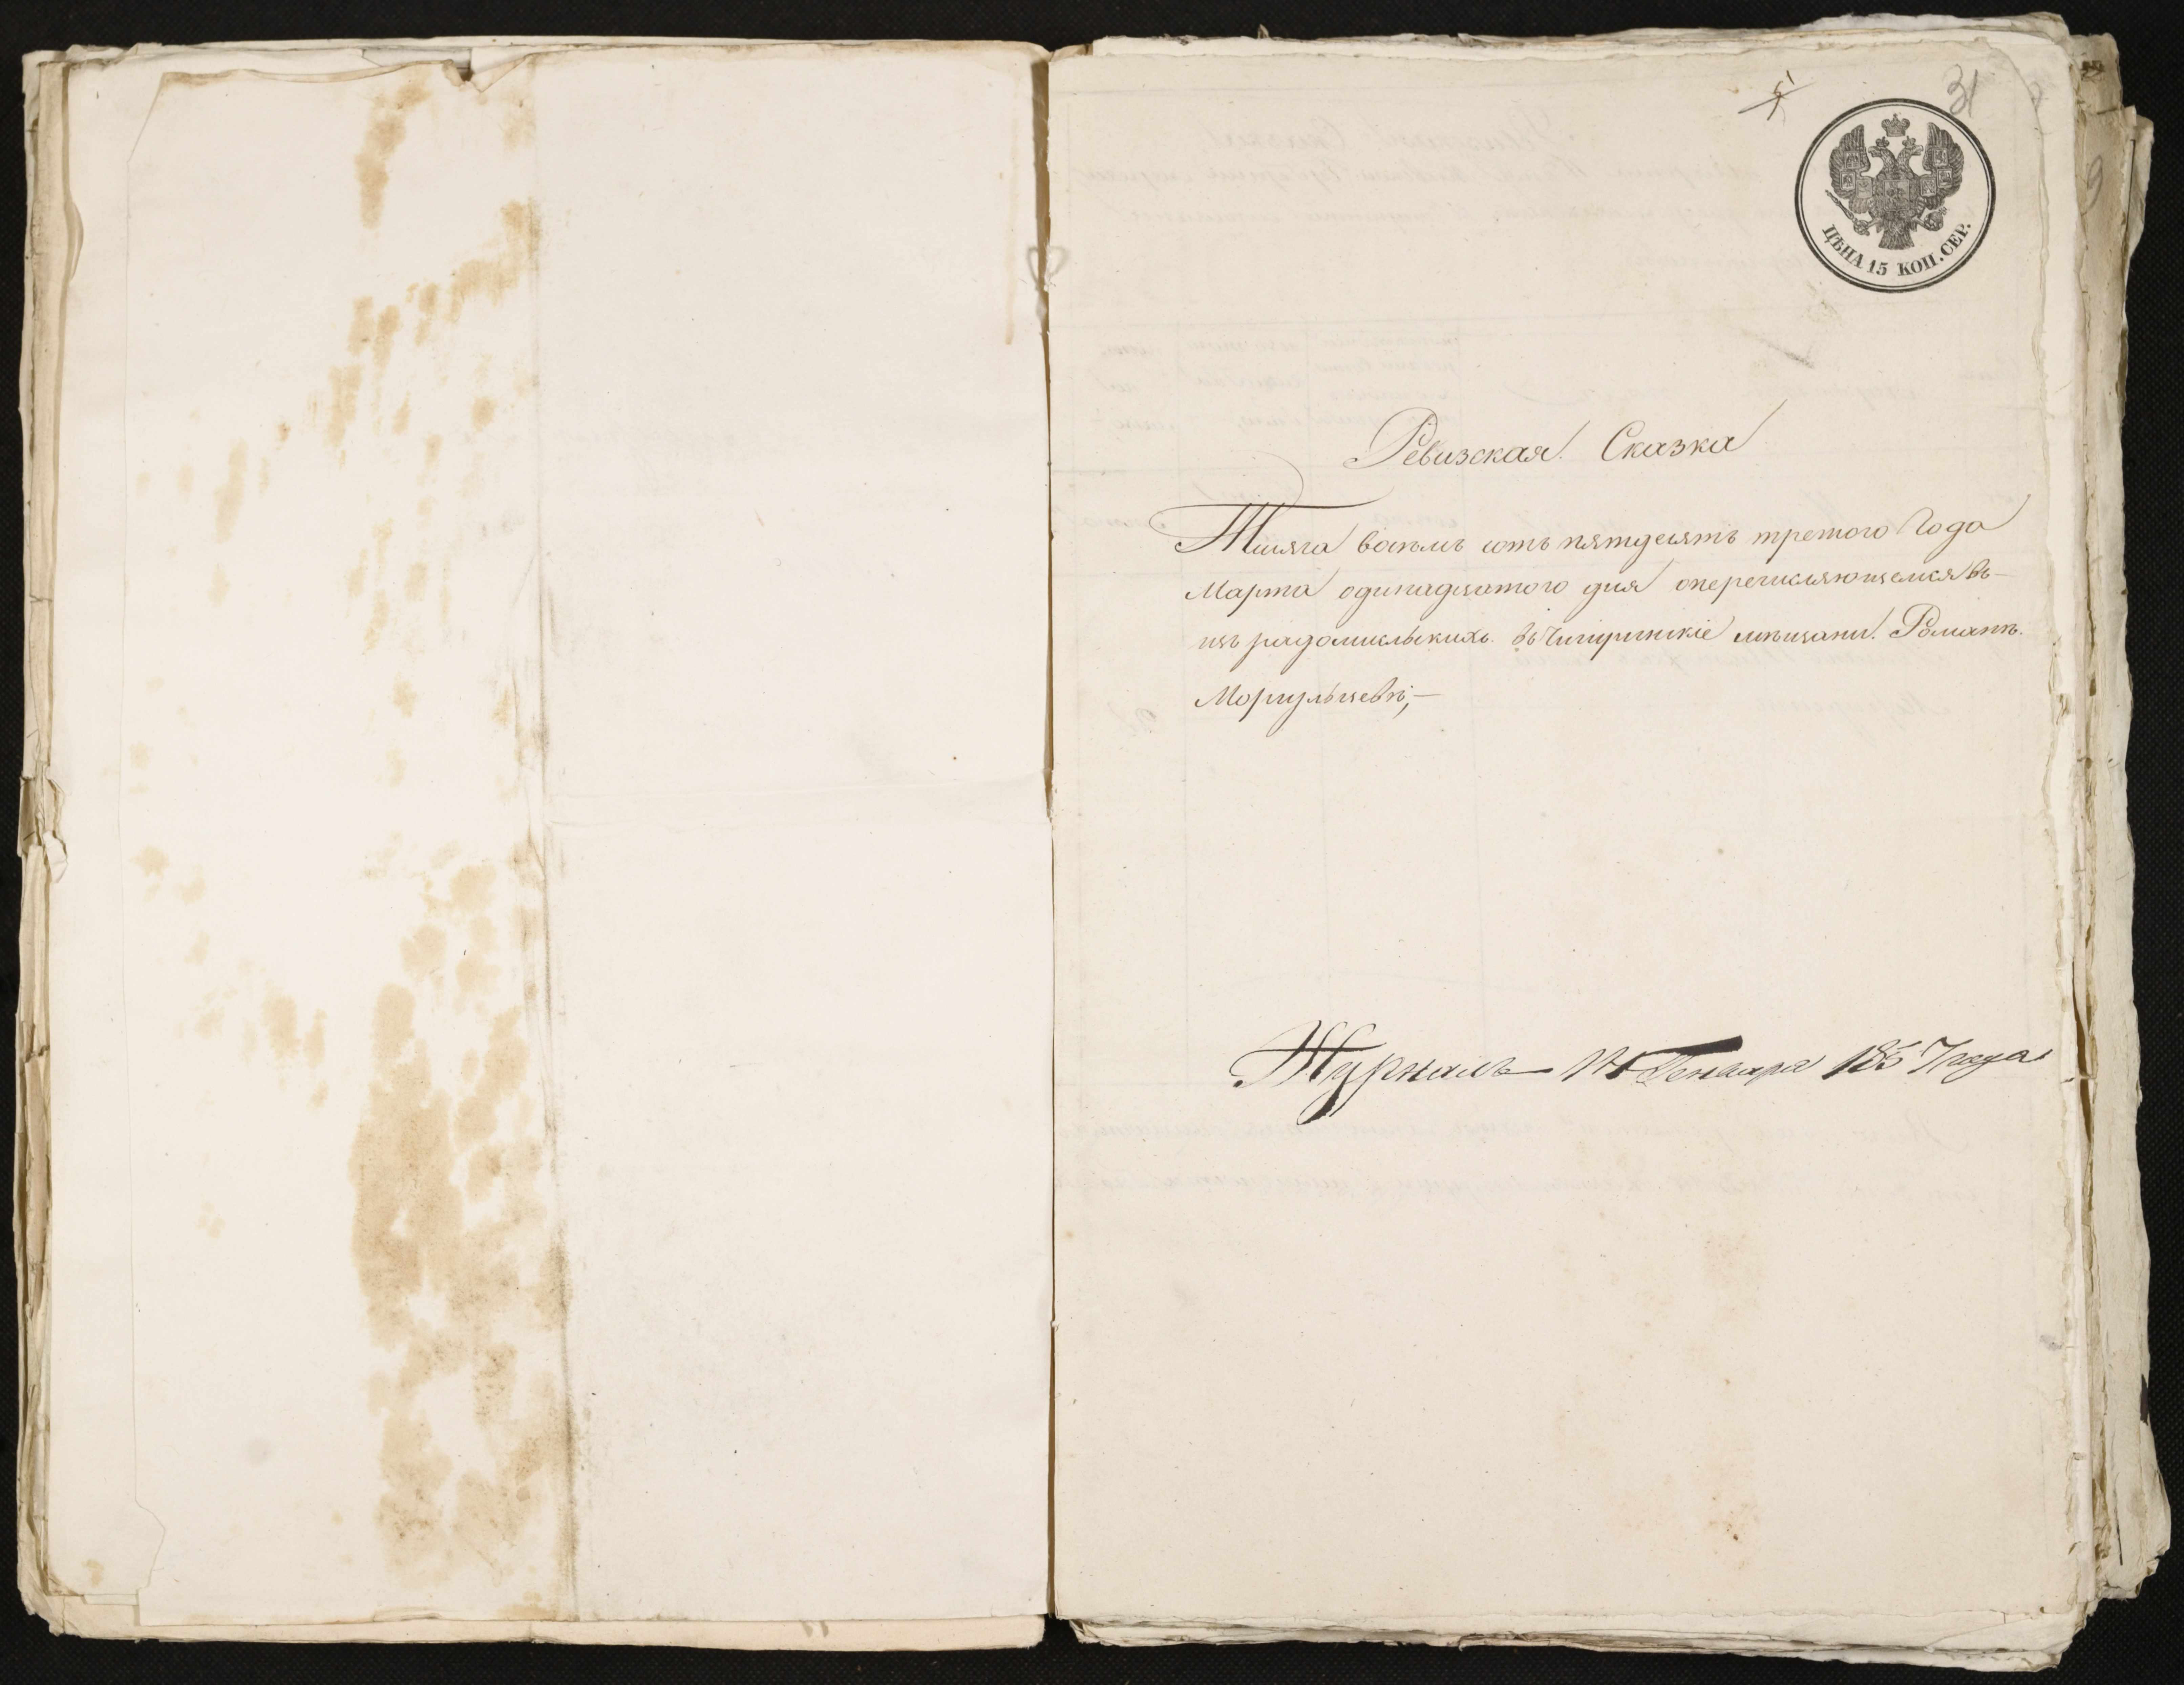 31
ЦѢНА 15 КОП. СЕР.
Ревизская Сказка
Тисяча восѣмъ сотъ пятдесятъ третого Года
Марта одинадцатого дня оперечисляющемся въ
изъ радомисльскихъ въ Чигиринскіе мѣщани Романѣ
Моргульцевѣ;—
Журналъ Генваря 1857 года